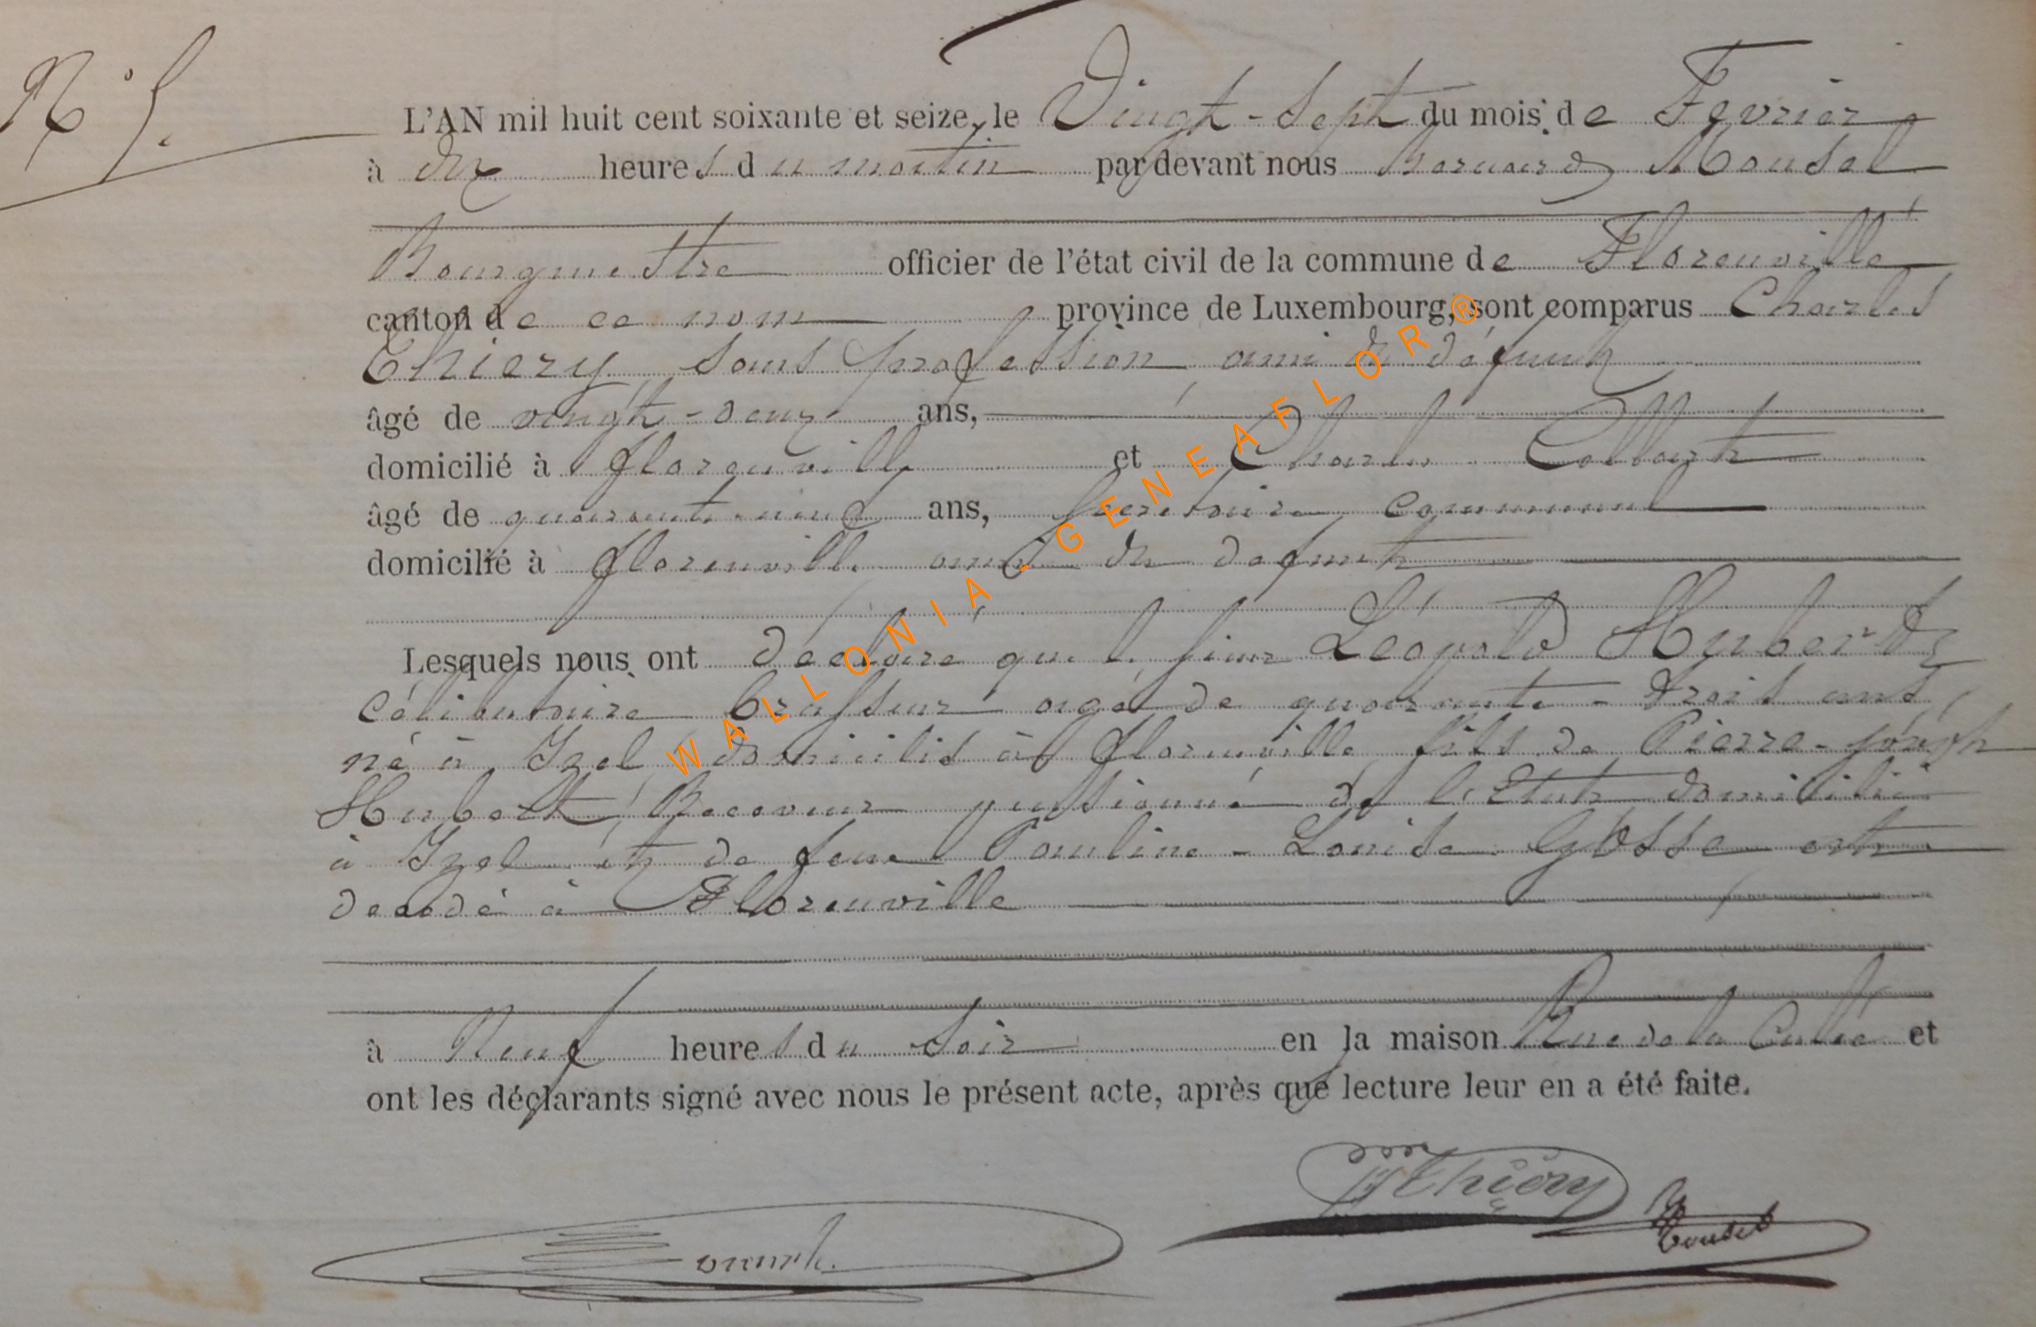 N° 5.
L'AN mil huit cent soixante et seize, le Vingt-Sept du mois de Fevrier
à dix heures du matin par devant nous Bernard Mousel
Bourgmestre officier de l'état civil de la commune de Florenville
canton de ce nom province de Luxembourg, sont comparus Charles
Thiery, sans profession ami du défunt
âgé de vingt-deux ans,
domicilié à florenville et Charles Collart
âgé de quarante-neuf ans, Secretaire communal
domicilié à florenville ami du defunt
Lesquels nous ont déclaré que le sieur Léopold Hubert
célibataire Brasseur agé de quarante-trois ans,
né à Izel, domicilié à florenville fils de Pierre-joseph
Hubert, Receveur pensionné de l'Etat domicilié
à Izel et de feue Pauline-Louise Gosse est
decedé à Florenville
à Neuf heures du Soir en la maison Rue de la Culée et
ont les déclarants signé avec nous le présent acte, après que lecture leur en a été faite.
Thiéry
Mousel
WALLONIA - GENEAFLOR ®